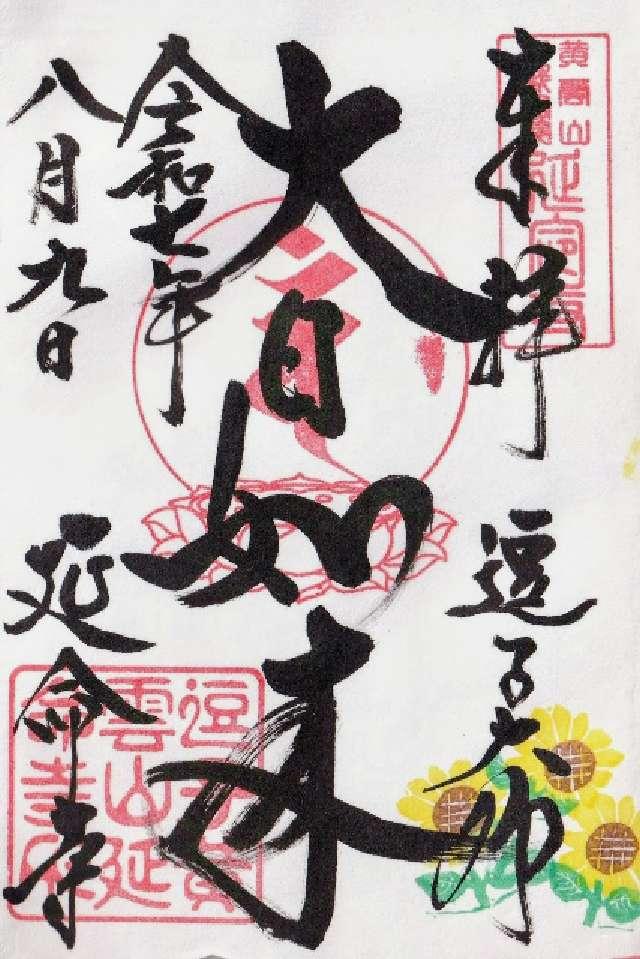 奉拝
逗子大師
大日如来
令和七年
八月九日
延命寺
黄雲山
延命寺
逗子黄
雲山延
命寺印